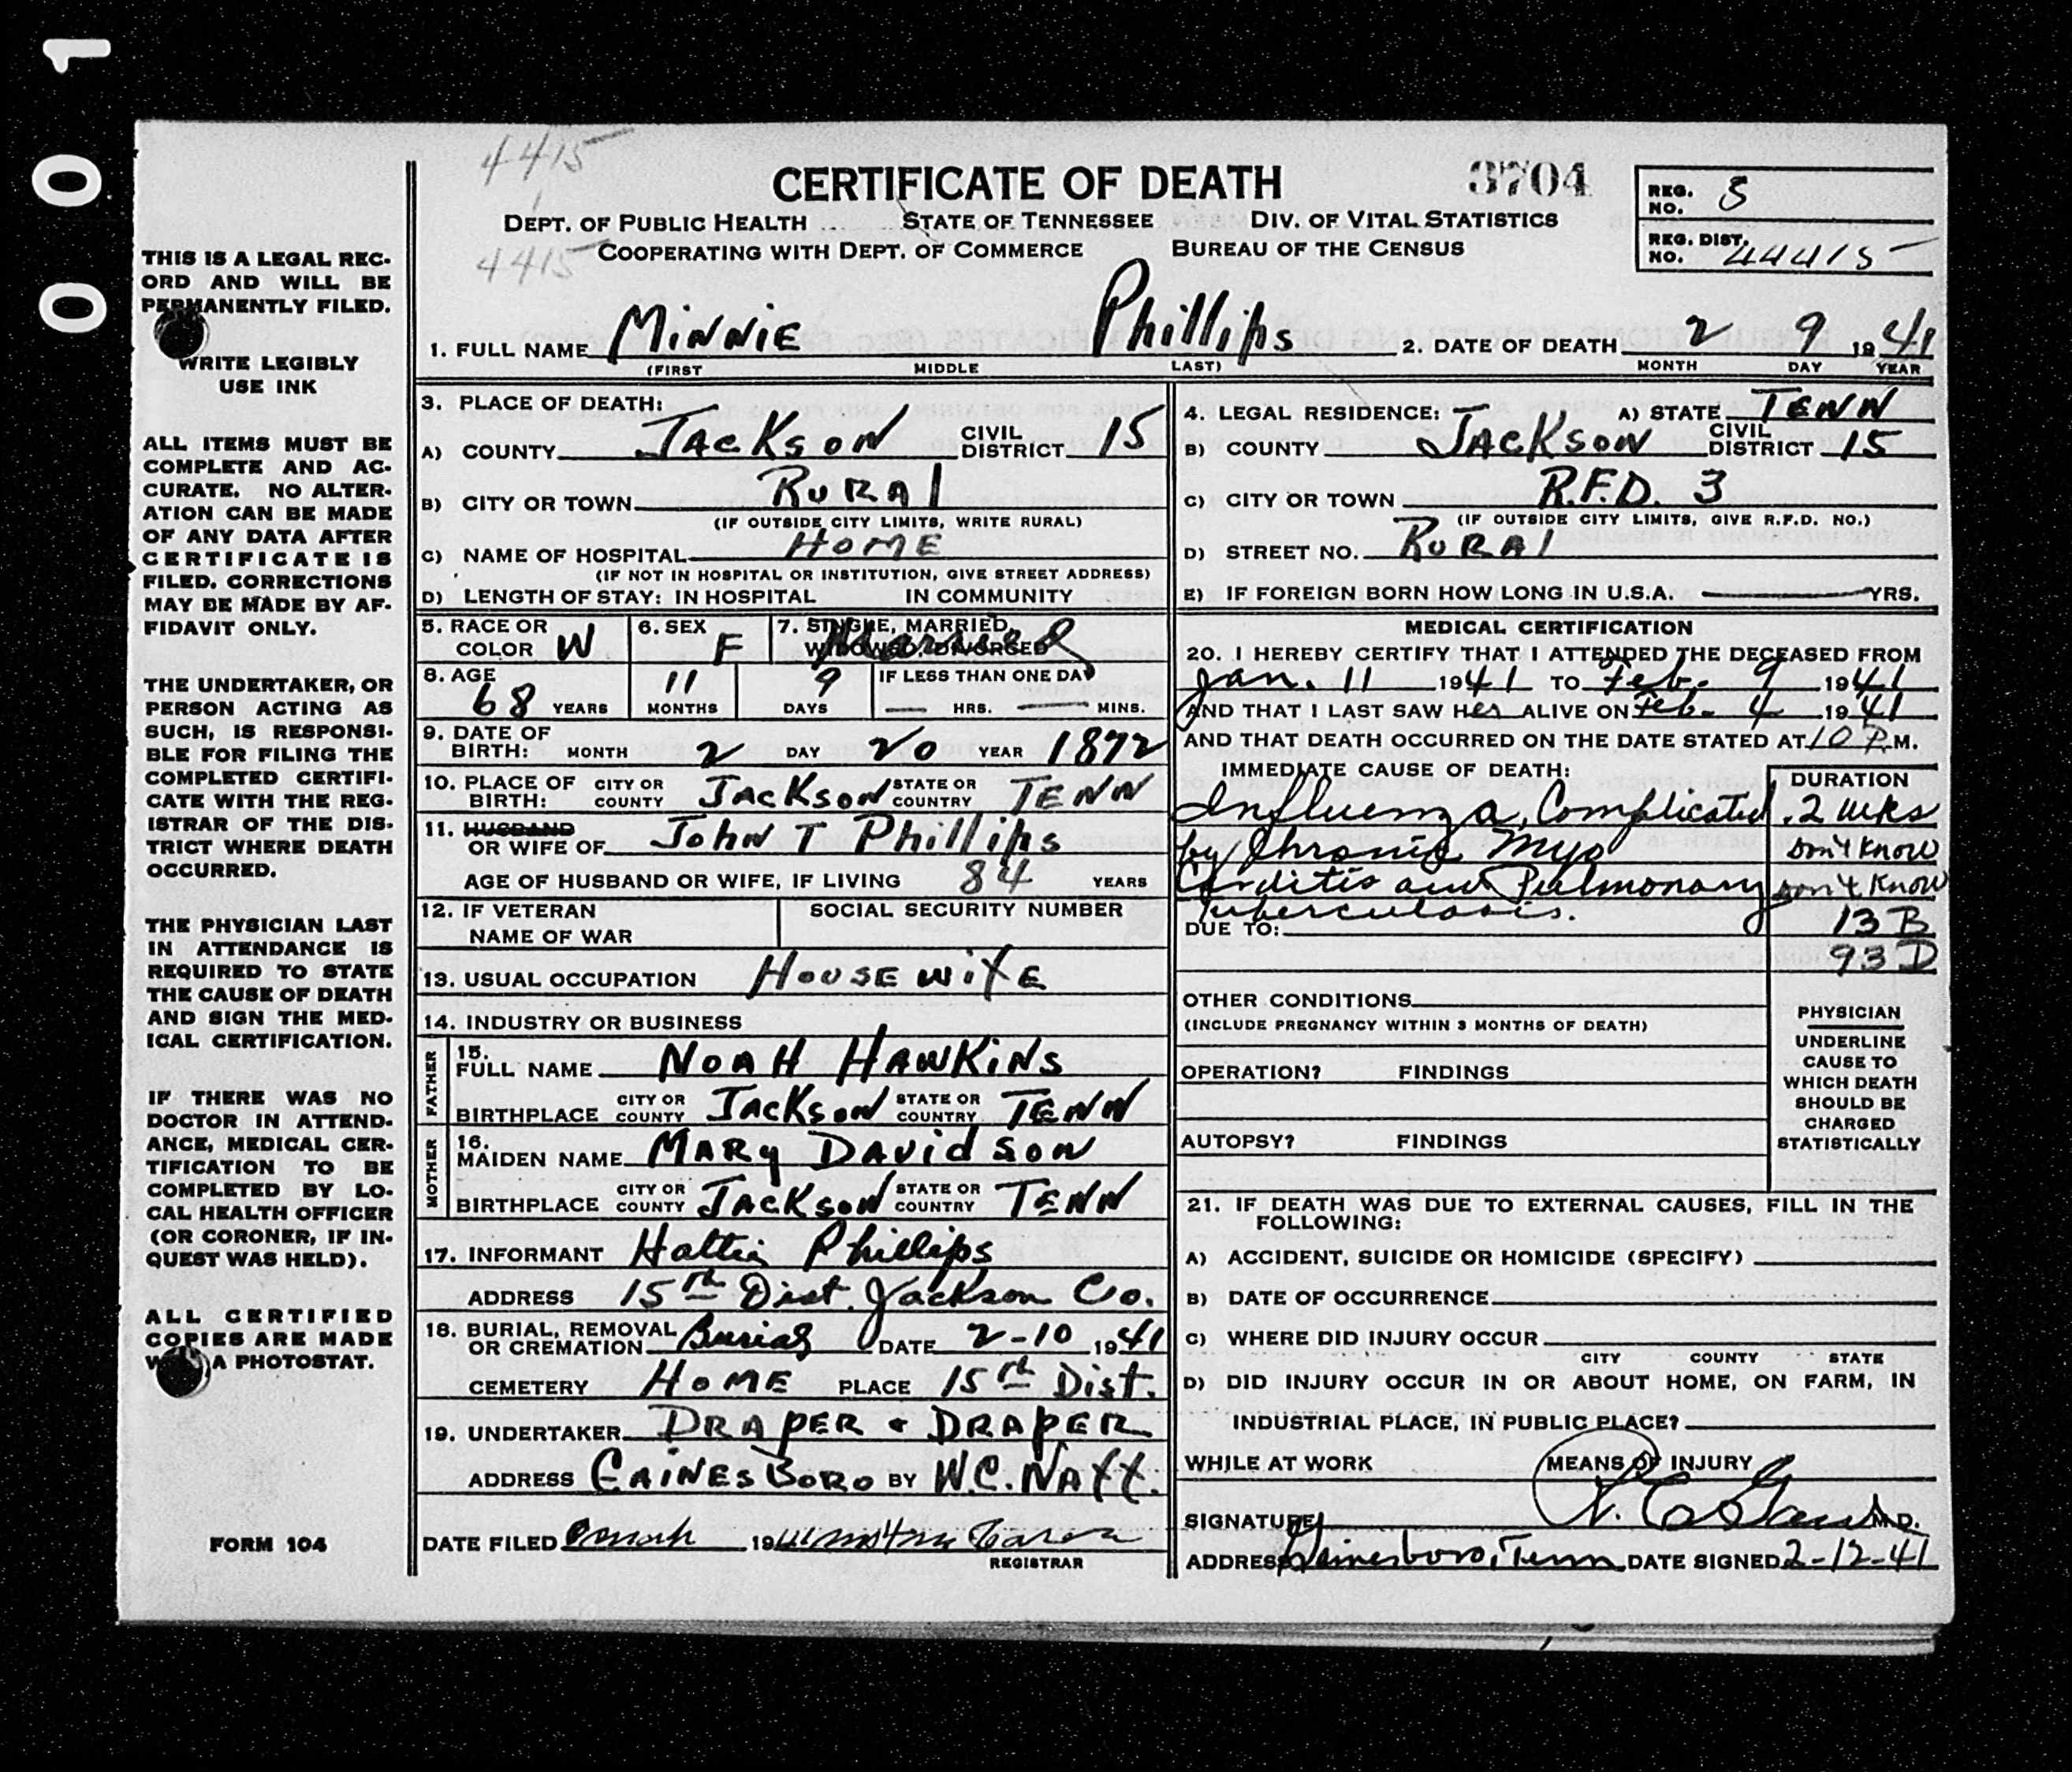 001
4415
CERTIFICATE OF DEATH
3704
REG. NO. 3
DEPT. OF PUBLIC HEALTH STATE OF TENNESSEE DIV. OF VITAL STATISTICS
4415
COOPERATING WITH DEPT. OF COMMERCE BUREAU OF THE CENSUS
REG. DIST. NO. 44415
1. FULL NAME MINNIE Phillips 2. DATE OF DEATH 2 9 1941
(FIRST MIDDLE LAST) MONTH DAY YEAR
THIS IS A LEGAL REC-
ORD AND WILL BE
PERMANENTLY FILED.
WRITE LEGIBLY
USE INK
ALL ITEMS MUST BE
COMPLETE AND AC-
CURATE. NO ALTER-
ATION CAN BE MADE
OF ANY DATA AFTER
CERTIFICATE IS
FILED. CORRECTIONS
MAY BE MADE BY AF-
FIDAVIT ONLY.
THE UNDERTAKER, OR
PERSON ACTING AS
SUCH, IS RESPONSI-
BLE FOR FILING THE
COMPLETED CERTIFI-
CATE WITH THE REG-
ISTRAR OF THE DIS-
TRICT WHERE DEATH
OCCURRED.
THE PHYSICIAN LAST
IN ATTENDANCE IS
REQUIRED TO STATE
THE CAUSE OF DEATH
AND SIGN THE MED-
ICAL CERTIFICATION.
IF THERE WAS NO
DOCTOR IN ATTEND-
ANCE, MEDICAL CER-
TIFICATION TO BE
COMPLETED BY LO-
CAL HEALTH OFFICER
(OR CORONER, IF IN-
QUEST WAS HELD).
ALL CERTIFIED
COPIES ARE MADE
A PHOTOSTAT.
FORM 104
3. PLACE OF DEATH:
A) COUNTY JACKSON CIVIL DISTRICT 15
B) CITY OR TOWN RURAl
(IF OUTSIDE CITY LIMITS, WRITE RURAL)
C) NAME OF HOSPITAL HOME
(IF NOT IN HOSPITAL OR INSTITUTION, GIVE STREET ADDRESS)
D) LENGTH OF STAY: IN HOSPITAL IN COMMUNITY
5. RACE OR COLOR W 6. SEX F 7. SINGLE, MARRIED, WIDOWED, DIVORCED Married
8. AGE 68 YEARS 11 MONTHS 9 DAYS IF LESS THAN ONE DAY — HRS. — MINS.
9. DATE OF BIRTH: MONTH 2 DAY 20 YEAR 1872
10. PLACE OF BIRTH: CITY OR COUNTY JACKSON STATE OR COUNTRY TENN
11. HUSBAND OR WIFE OF JOHN T Phillips
AGE OF HUSBAND OR WIFE, IF LIVING 84 YEARS
12. IF VETERAN NAME OF WAR SOCIAL SECURITY NUMBER
13. USUAL OCCUPATION HOUSE WIFE
14. INDUSTRY OR BUSINESS
FATHER
15. FULL NAME NOAH HAWKINS
BIRTHPLACE CITY OR COUNTY JACKSON STATE OR COUNTRY TENN
MOTHER
16. MAIDEN NAME MARY DAVIDSON
BIRTHPLACE CITY OR COUNTY JACKSON STATE OR COUNTRY TENN
17. INFORMANT Hattie Phillips
ADDRESS 15th Dist. Jackson Co.
18. BURIAL, REMOVAL OR CREMATION Burial DATE 2-10 1941
CEMETERY HOME PLACE 15th Dist.
19. UNDERTAKER DRAPER & DRAPER
ADDRESS GAINESBORO BY W.C. NAFF.
DATE FILED 1941
REGISTRAR
4. LEGAL RESIDENCE: A) STATE TENN
B) COUNTY JACKSON CIVIL DISTRICT 15
C) CITY OR TOWN R.F.D. 3
(IF OUTSIDE CITY LIMITS, GIVE R.F.D. NO.)
D) STREET NO. RURAl
E) IF FOREIGN BORN HOW LONG IN U.S.A. — YRS.
MEDICAL CERTIFICATION
20. I HEREBY CERTIFY THAT I ATTENDED THE DECEASED FROM
Jan. 11 1941 TO Feb. 9 1941
AND THAT I LAST SAW Her ALIVE ON Feb. 4 1941
AND THAT DEATH OCCURRED ON THE DATE STATED AT 10 P.M.
IMMEDIATE CAUSE OF DEATH: DURATION
Influenza, Complicated 2 wks
by Chronic Myo Don't Know
Carditis and Pulmonary Don't Know
Tuberculosis.
DUE TO: 13 B
93 D
OTHER CONDITIONS
(INCLUDE PREGNANCY WITHIN 3 MONTHS OF DEATH)
OPERATION? FINDINGS
AUTOPSY? FINDINGS
PHYSICIAN
UNDERLINE
CAUSE TO
WHICH DEATH
SHOULD BE
CHARGED
STATISTICALLY
21. IF DEATH WAS DUE TO EXTERNAL CAUSES, FILL IN THE
FOLLOWING:
A) ACCIDENT, SUICIDE OR HOMICIDE (SPECIFY)
B) DATE OF OCCURRENCE
C) WHERE DID INJURY OCCUR
CITY COUNTY STATE
D) DID INJURY OCCUR IN OR ABOUT HOME, ON FARM, IN
INDUSTRIAL PLACE, IN PUBLIC PLACE?
WHILE AT WORK MEANS OF INJURY
SIGNATURE M.D.
ADDRESS Gainesboro, Tenn DATE SIGNED 2-12-41